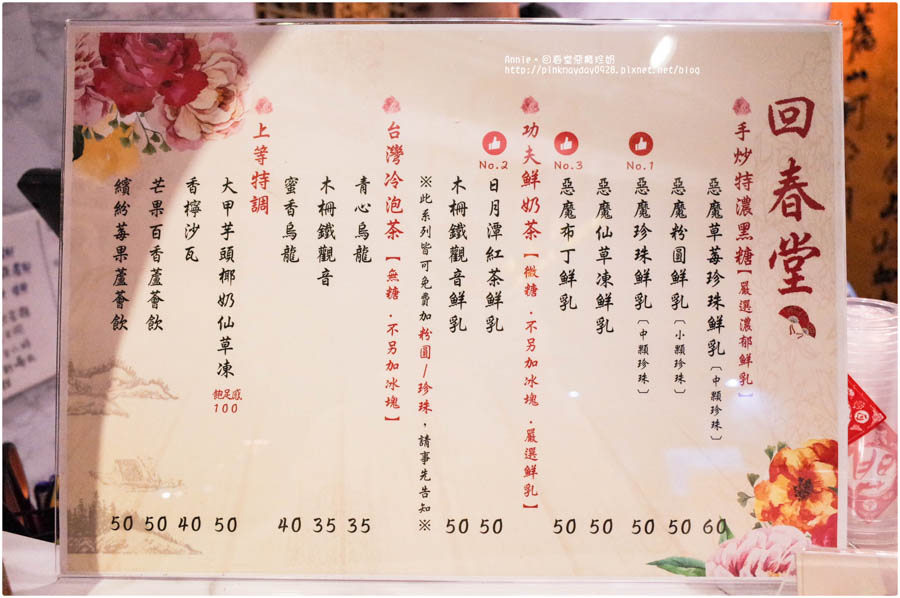 Annie。回春堂惡魔珍奶
http://pinkmayday0928.pixnet.net/blog
回春堂
手炒特濃黑糖【嚴選濃郁鮮乳】
惡魔草莓珍珠鮮乳〔中顆珍珠〕 60
惡魔粉圓鮮乳〔小顆珍珠〕 50
No.1
惡魔珍珠鮮乳〔中顆珍珠〕 50
惡魔仙草凍鮮乳 50
No.3
惡魔布丁鮮乳 50
功夫鮮奶茶【微糖．不另加冰塊．嚴選鮮乳】
No.2
日月潭紅茶鮮乳 50
木柵鐵觀音鮮乳 50
※此系列皆可免費加粉圓/珍珠，請事先告知※
台灣冷泡茶【無糖．不另加冰塊】
青心烏龍 35
木柵鐵觀音 35
蜜香烏龍 40
上等特調
大甲芋頭椰奶仙草凍 飽足感100 50
香檸沙瓦 40
芒果百香蘆薈飲 50
繽紛莓果蘆薈飲 50